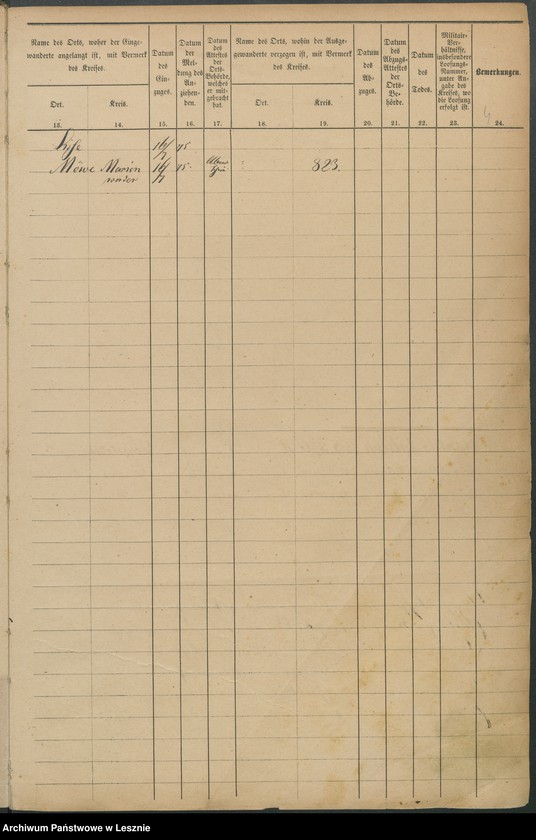 Name des Orts, woher der Einge-
wanderte angelangt ist, mit Vermerk
des Kreises.
Ort.
Kreis.
13.
14.
Datum
des
Ein-
zuges.
15.
Datum
der
Mel-
dung des
An-
ziehen-
den.
16.
Datum
des
Attestes
der
Orts-
Behörde,
welches
er mit-
gebracht
hat.
17.
Name des Orts, wohin der Ausge-
gewanderte verzogen ist, mit Vermerk
des Kreises.
Ort.
Kreis.
18.
19.
Datum
des
Ab-
zuges.
20.
Datum
des
Abzugs-
Attestes
der
Orts-
Be-
hörde.
21.
Datum
des
Todes.
22.
Militair-
Ver-
hältnisse,
insbesondere
Loosungs-
Nummer,
unter An-
gabe des
Kreises, wo
die Loosung
erfolgt ist.
23.
Bemerkungen.
24.
16/7 75
Möwe Marien 16/7 75. 823.
werder
Archiwum Państwowe w Lesznie